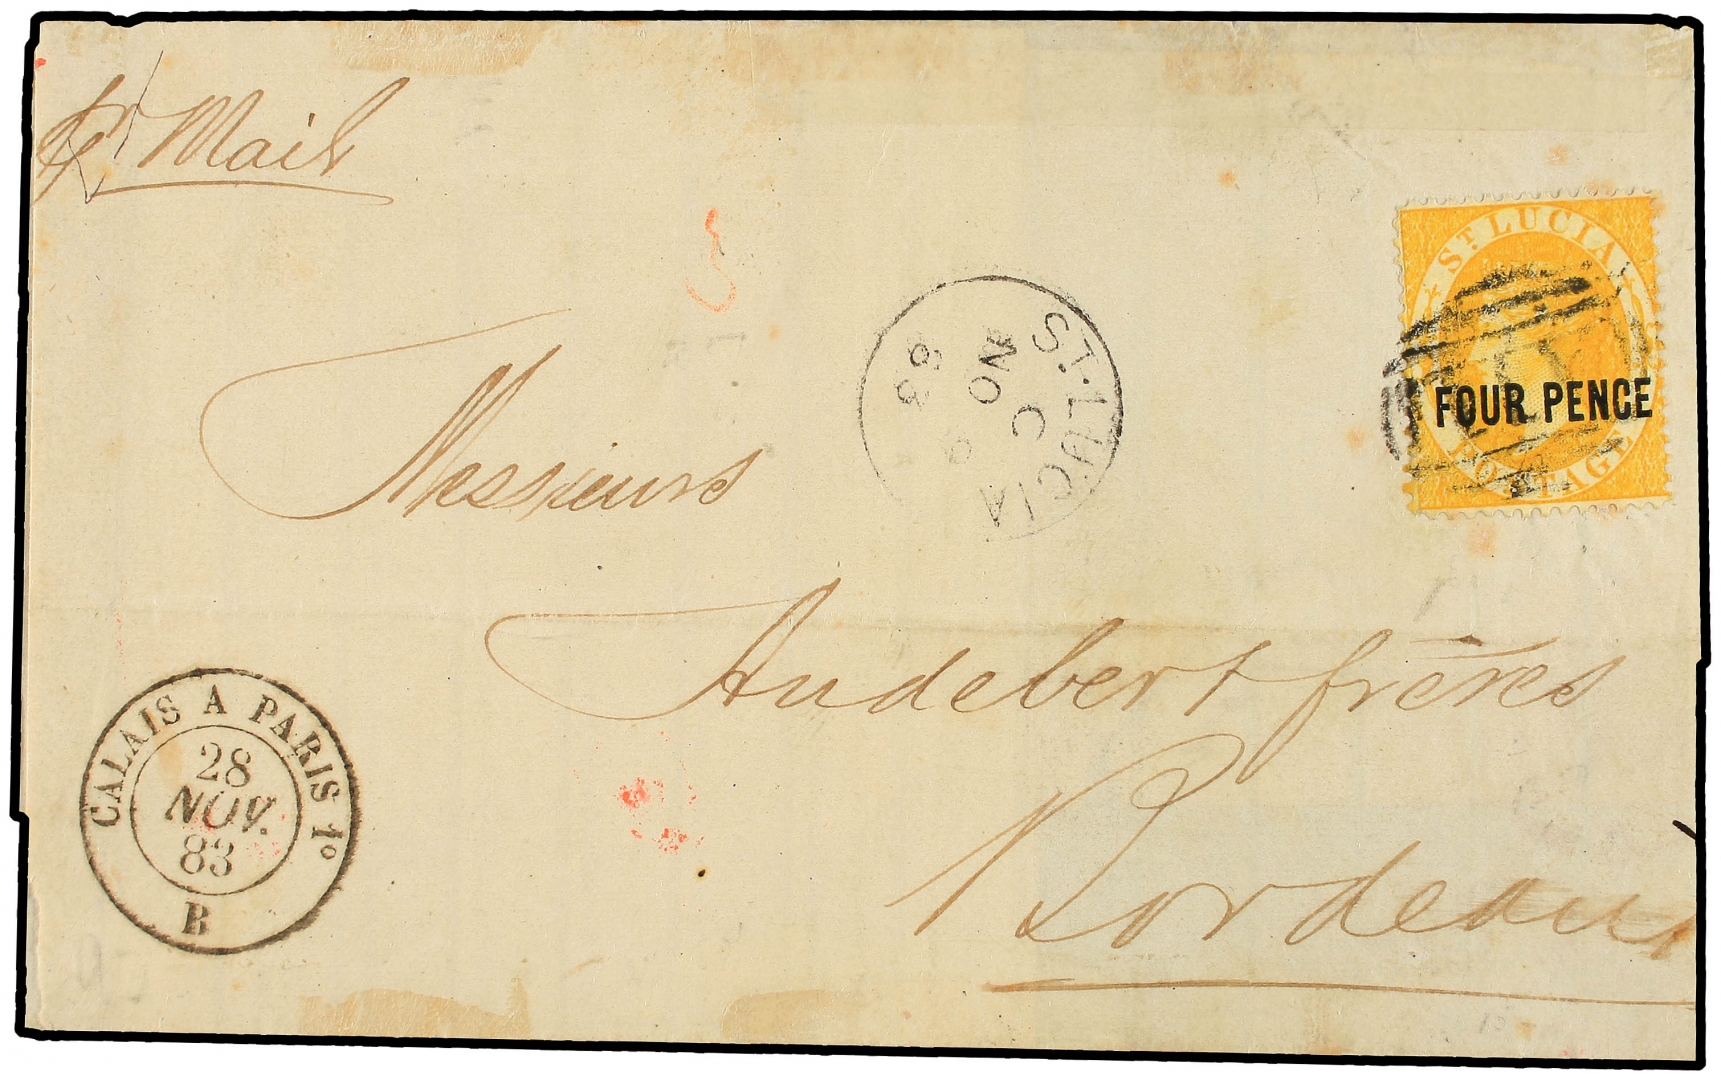 pr Mail
ST. LUCIA
FOUR PENCE
POSTAGE
ST. LUCIA
C
NO
83
Messieurs
Audebert frères
Bordeaux
CALAIS A PARIS 1º
28
NOV.
83
B